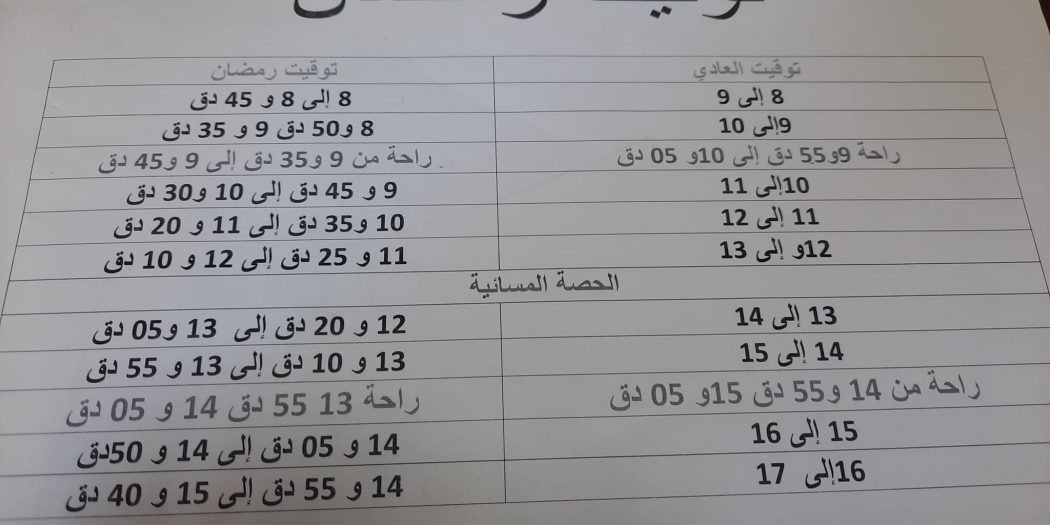 توقيت العادي توقيت رمضان
8 إلى 9 8 إلى 8 و 45 دق
9إلى 10 8 و50 دق 9 و 35 دق
راحة 9و55 دق إلى 10و 05 دق راحة من 9 و35 دق إلى 9 و45 دق
10إلى 11 9 و 45 دق إلى 10 و30 دق
11 إلى 12 10 و35 دق إلى 11 و 20 دق
12و إلى 13 11 و 25 دق إلى 12 و 10 دق
الحصة المسائية
13 إلى 14 12 و 20 دق إلى 13 و05 دق
14 إلى 15 13 و 10 دق إلى 13 و 55 دق
راحة من 14 و55 دق 15و 05 دق راحة 13 55 دق 14 و 05 دق
15 إلى 16 14 و 05 دق إلى 14 و 50دق
16إلى 17 14 و 55 دق إلى 15 و 40 دق